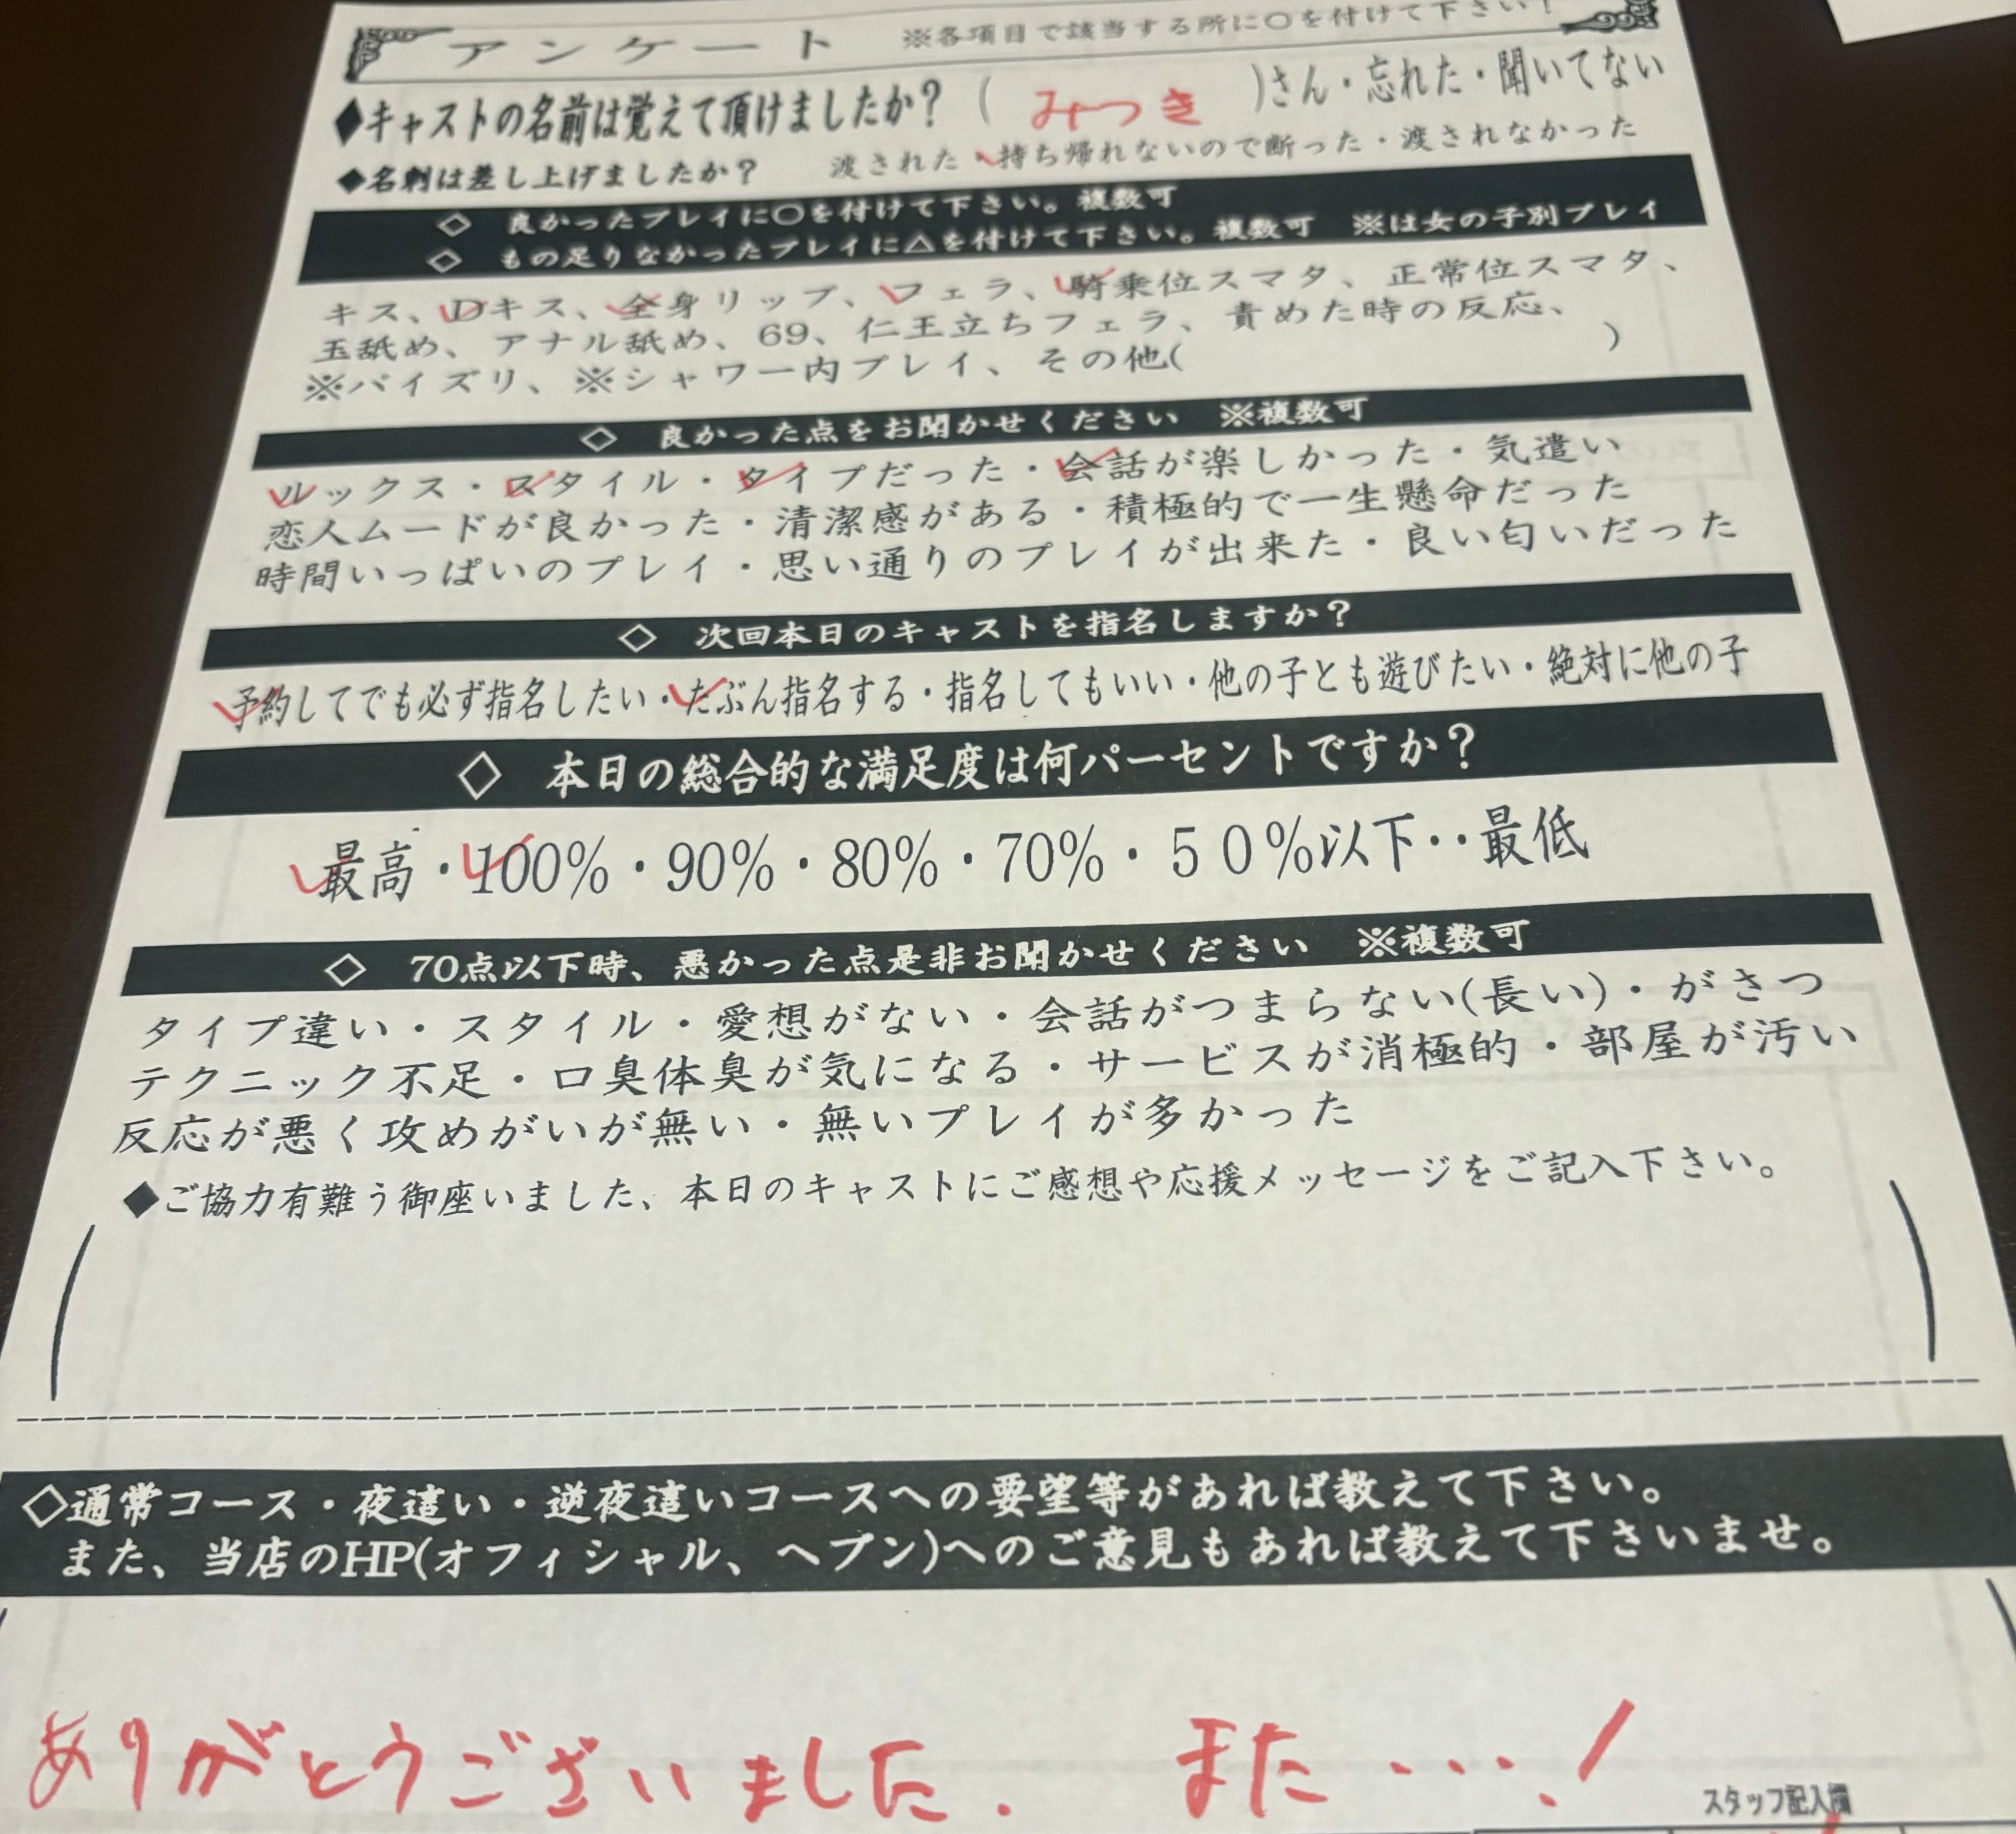 アンケート ※各項目で該当する所に〇を付けて下さい！
◆キャストの名前は覚えて頂けましたか？ ( みつき )さん・忘れた・聞いてない
◆名刺は差し上げましたか？ 渡された・持ち帰れないので断った・渡されなかった
◇ 良かったプレイに〇を付けて下さい。複数可
◇ もの足りなかったプレイに△を付けて下さい。複数可 ※は女の子別プレイ
キス、Dキス、全身リップ、フェラ、騎乗位スマタ、正常位スマタ、
玉舐め、アナル舐め、69、仁王立ちフェラ、責めた時の反応、
※パイズリ、※シャワー内プレイ、その他( )
◇ 良かった点をお聞かせください ※複数可
ルックス・スタイル・タイプだった・会話が楽しかった・気遣い
恋人ムードが良かった・清潔感がある・積極的で一生懸命だった
時間いっぱいのプレイ・思い通りのプレイが出来た・良い匂いだった
◇ 次回本日のキャストを指名しますか？
予約してでも必ず指名したい・たぶん指名する・指名してもいい・他の子とも遊びたい・絶対に他の子
◇ 本日の総合的な満足度は何パーセントですか？
最高・100%・90%・80%・70%・５０%以下‥最低
◇ 70点以下時、悪かった点是非お聞かせください ※複数可
タイプ違い・スタイル・愛想がない・会話がつまらない(長い)・がさつ
テクニック不足・口臭体臭が気になる・サービスが消極的・部屋が汚い
反応が悪く攻めがいが無い・無いプレイが多かった
◆ご協力有難う御座いました、本日のキャストにご感想や応援メッセージをご記入下さい。
◇通常コース・夜這い・逆夜這いコースへの要望等があれば教えて下さい。
また、当店のHP(オフィシャル、ヘブン)へのご意見もあれば教えて下さいませ。
ありがとうございました. また・・・・！
スタッフ記入欄